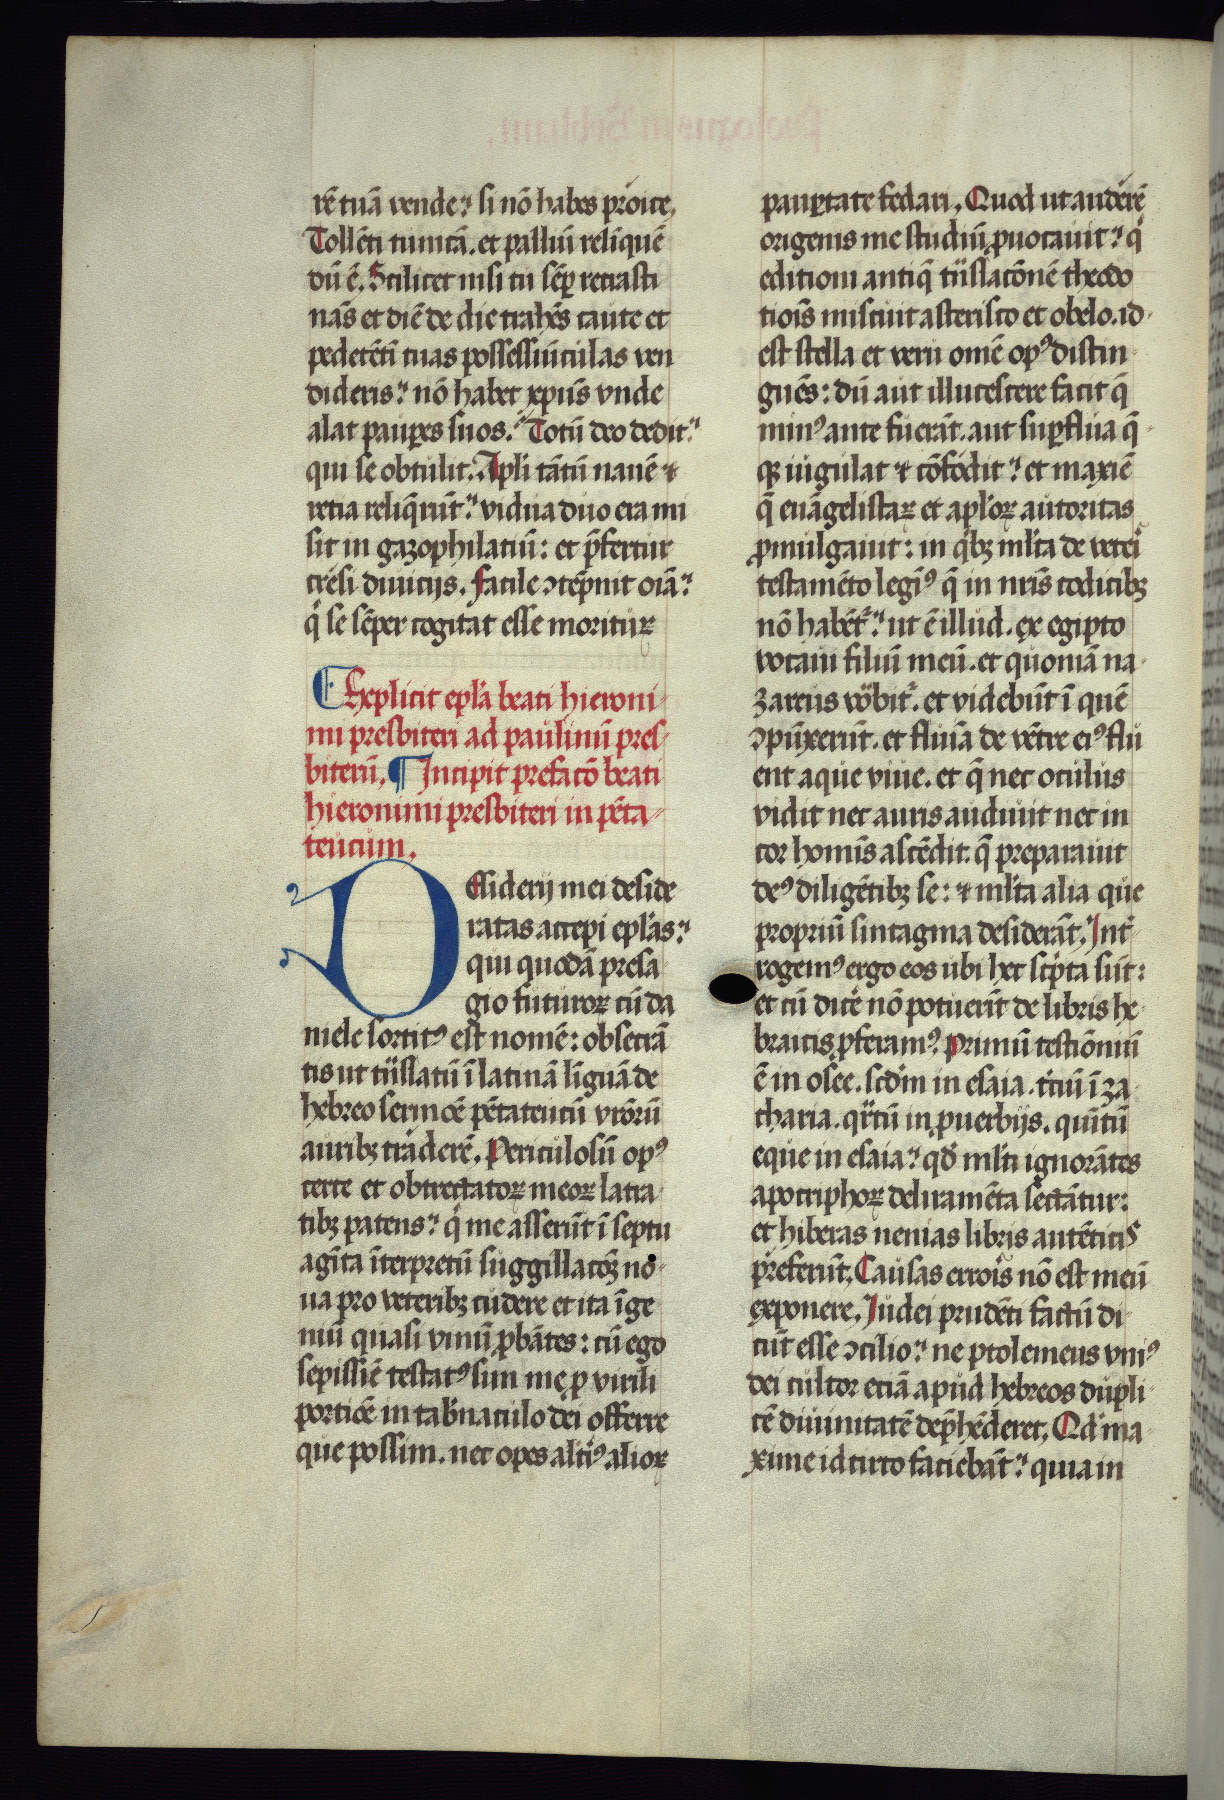 rē tuā vende? si nō habes proice.
Tollēti tunicā. et palliū relīquē
dū ē. Scilicet nisi tu sēp̲ recrasti
nās et diē de die trahēs caute et
pedetētī tuas possessiūculas ven
dideris? nō habet xpūs vnde
alat paup̲es suos. Totū deo dedit?
qui se obtulit. Apl'i tātū nauē ⁊
retia reliq̄rūt? vidua duo era mi
sit in gazophilatiū: et p̄fertur
cresi diuicijs. Facile ↄtēpnit oīa?
q̇ se sēper cogitat esse moriturꝫ
Explicit epl'a beati hieroni-
mi presbiteri ad paulinū pres-
biterū. ¶ Incipit prefatō beati
hieronimi presbiteri in pēta-
teucum.
DEsiderij mei deside
ratas accepi epl'as?
qui quodā presa
gio futuroꝝ cū da
niele sortitꝰ est nomē: obsecrā
tis ut trāslatū ī latinā līguā de
hebreo sermoē pētateucū vrōrū
auribꝫ traderē. Periculosū opꝰ
certe et obtrectatoꝝ meoꝝ latra
tibꝫ patens? q̇ me asserūt ī septu
agīta īterpretū suggillatōꝫ no
ua pro veteribꝫ cudere et ita īge
niū quasi vinū ꝓbātes: cū ego
sepissiē testatꝰ sim me ꝓ virili
portiōē in tab'naculo dei offerre
que possim. nec opes altiꝰ alioꝝ
paup̲tate fedari. Quod ut auderē
origenis me studiū ꝓuocauit? q̇
editioni antiq̄ trāslacōnē theodo
tiois miscuit asterisco et obelo. id
est stella et veru omē opꝰ distin
guēs: dū aut illucescere facit q̄
minꝰ ante fuerāt. aut sup̲flua q̄
qꝫ iugulat ⁊ cōfodit? et maxiē
q̄ euāgelistaꝝ et apl'oꝝ autoritas
ꝓmulgauit: in q̇bꝫ ml'ta de veteri
testamēto legīꝰ q̄ in nris codicibꝫ
nō habētʳ? ut ē illud. ex egipto
vocaui filiū meū. et quoniā na
zareus vocabitʳ. et videbūt ī quē
ↄpūxerūt. et fluīa de vētre eiꝰ flu
ent aque viue. et q̄ nec oculus
vidit nec auris audiuit nec in
cor homīs ascēdit. q̄ preparauit
deꝰ diligētibꝫ se: ⁊ ml'ta alia que
propriū sintagma desiderāt. Int'
rogemꝰ ergo eos ubi hec scͥpta sūt:
et cū dicē nō potuerīt de libris he
braicis ꝓferamꝰ. Primū testiōniū
ē in osee. scdm in esaia. tciū ī za
charia. qrtū in ꝓuerbijs. quītū
eque in esaia? qd' ml'ti ignorātes
apocriphoꝝ deliramēta sectātur:
et hiberas nenias libris autētici
preferūt. Causas errois nō est meū
exponere. Judei prudēti factū di
cūt esse ↄcilio? ne ptolemeus vniꝰ
dei cultor etiā apud hebreos dupli
cē diuinitatē dep̄hēderet. Qd' ma
xime idcirco faciebāt? quia in